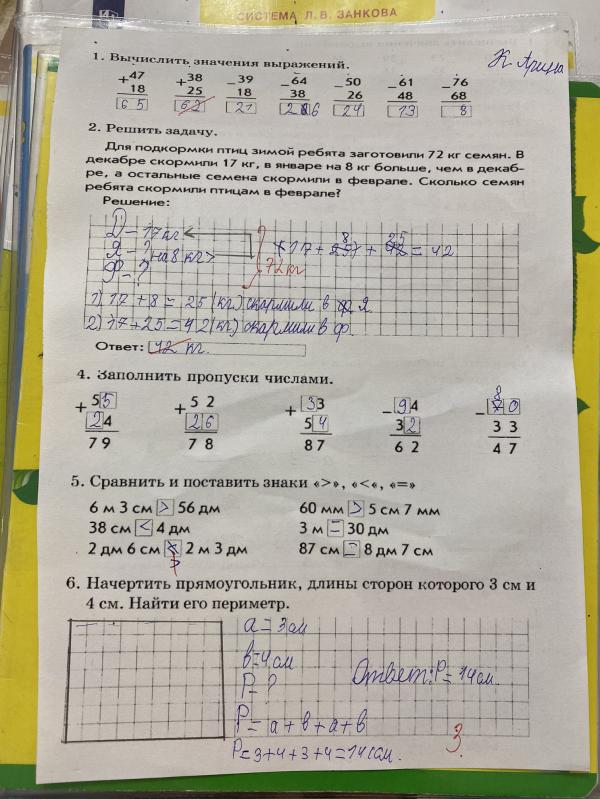 СИСТЕМА Л. В. ЗАНКОВА
К Арина
1. Вычислить значения выражений.
+47 +38 −39 −64 −50 −61 −76
18 25 18 38 26 48 68
65 62 21 26 24 13 8
2. Решить задачу.
Для подкормки птиц зимой ребята заготовили 72 кг семян. В
декабре скормили 17 кг, в январе на 8 кг больше, чем в декаб-
ре, а остальные семена скормили в феврале. Сколько семян
ребята скормили птицам в феврале?
Решение:
Д – 17 кг
Я – ? на 8 кг >
Ф – ?
72 кг
= 42
1) 17 + 8 = 25 (кг) скормили в Я.
2) 17 + 25 = 42 (кг) скормили в ф.
Ответ: 42 кг.
4. Заполнить пропуски числами.
+55 +52 +33 −94 −80
24 26 54 32 33
79 78 87 62 47
5. Сравнить и поставить знаки «>», «<«, «=»
6 м 3 см > 56 дм 60 мм > 5 см 7 мм
38 см < 4 дм 3 м = 30 дм
2 дм 6 см < 2 м 3 дм 87 см = 8 дм 7 см
6. Начертить прямоугольник, длины сторон которого 3 см и
4 см. Найти его периметр.
a = 3 см
в = 4 см
P = ?
Ответ: P = 14 см.
P = a + в + a + в
P = 3 + 4 + 3 + 4 = 14 см.
3